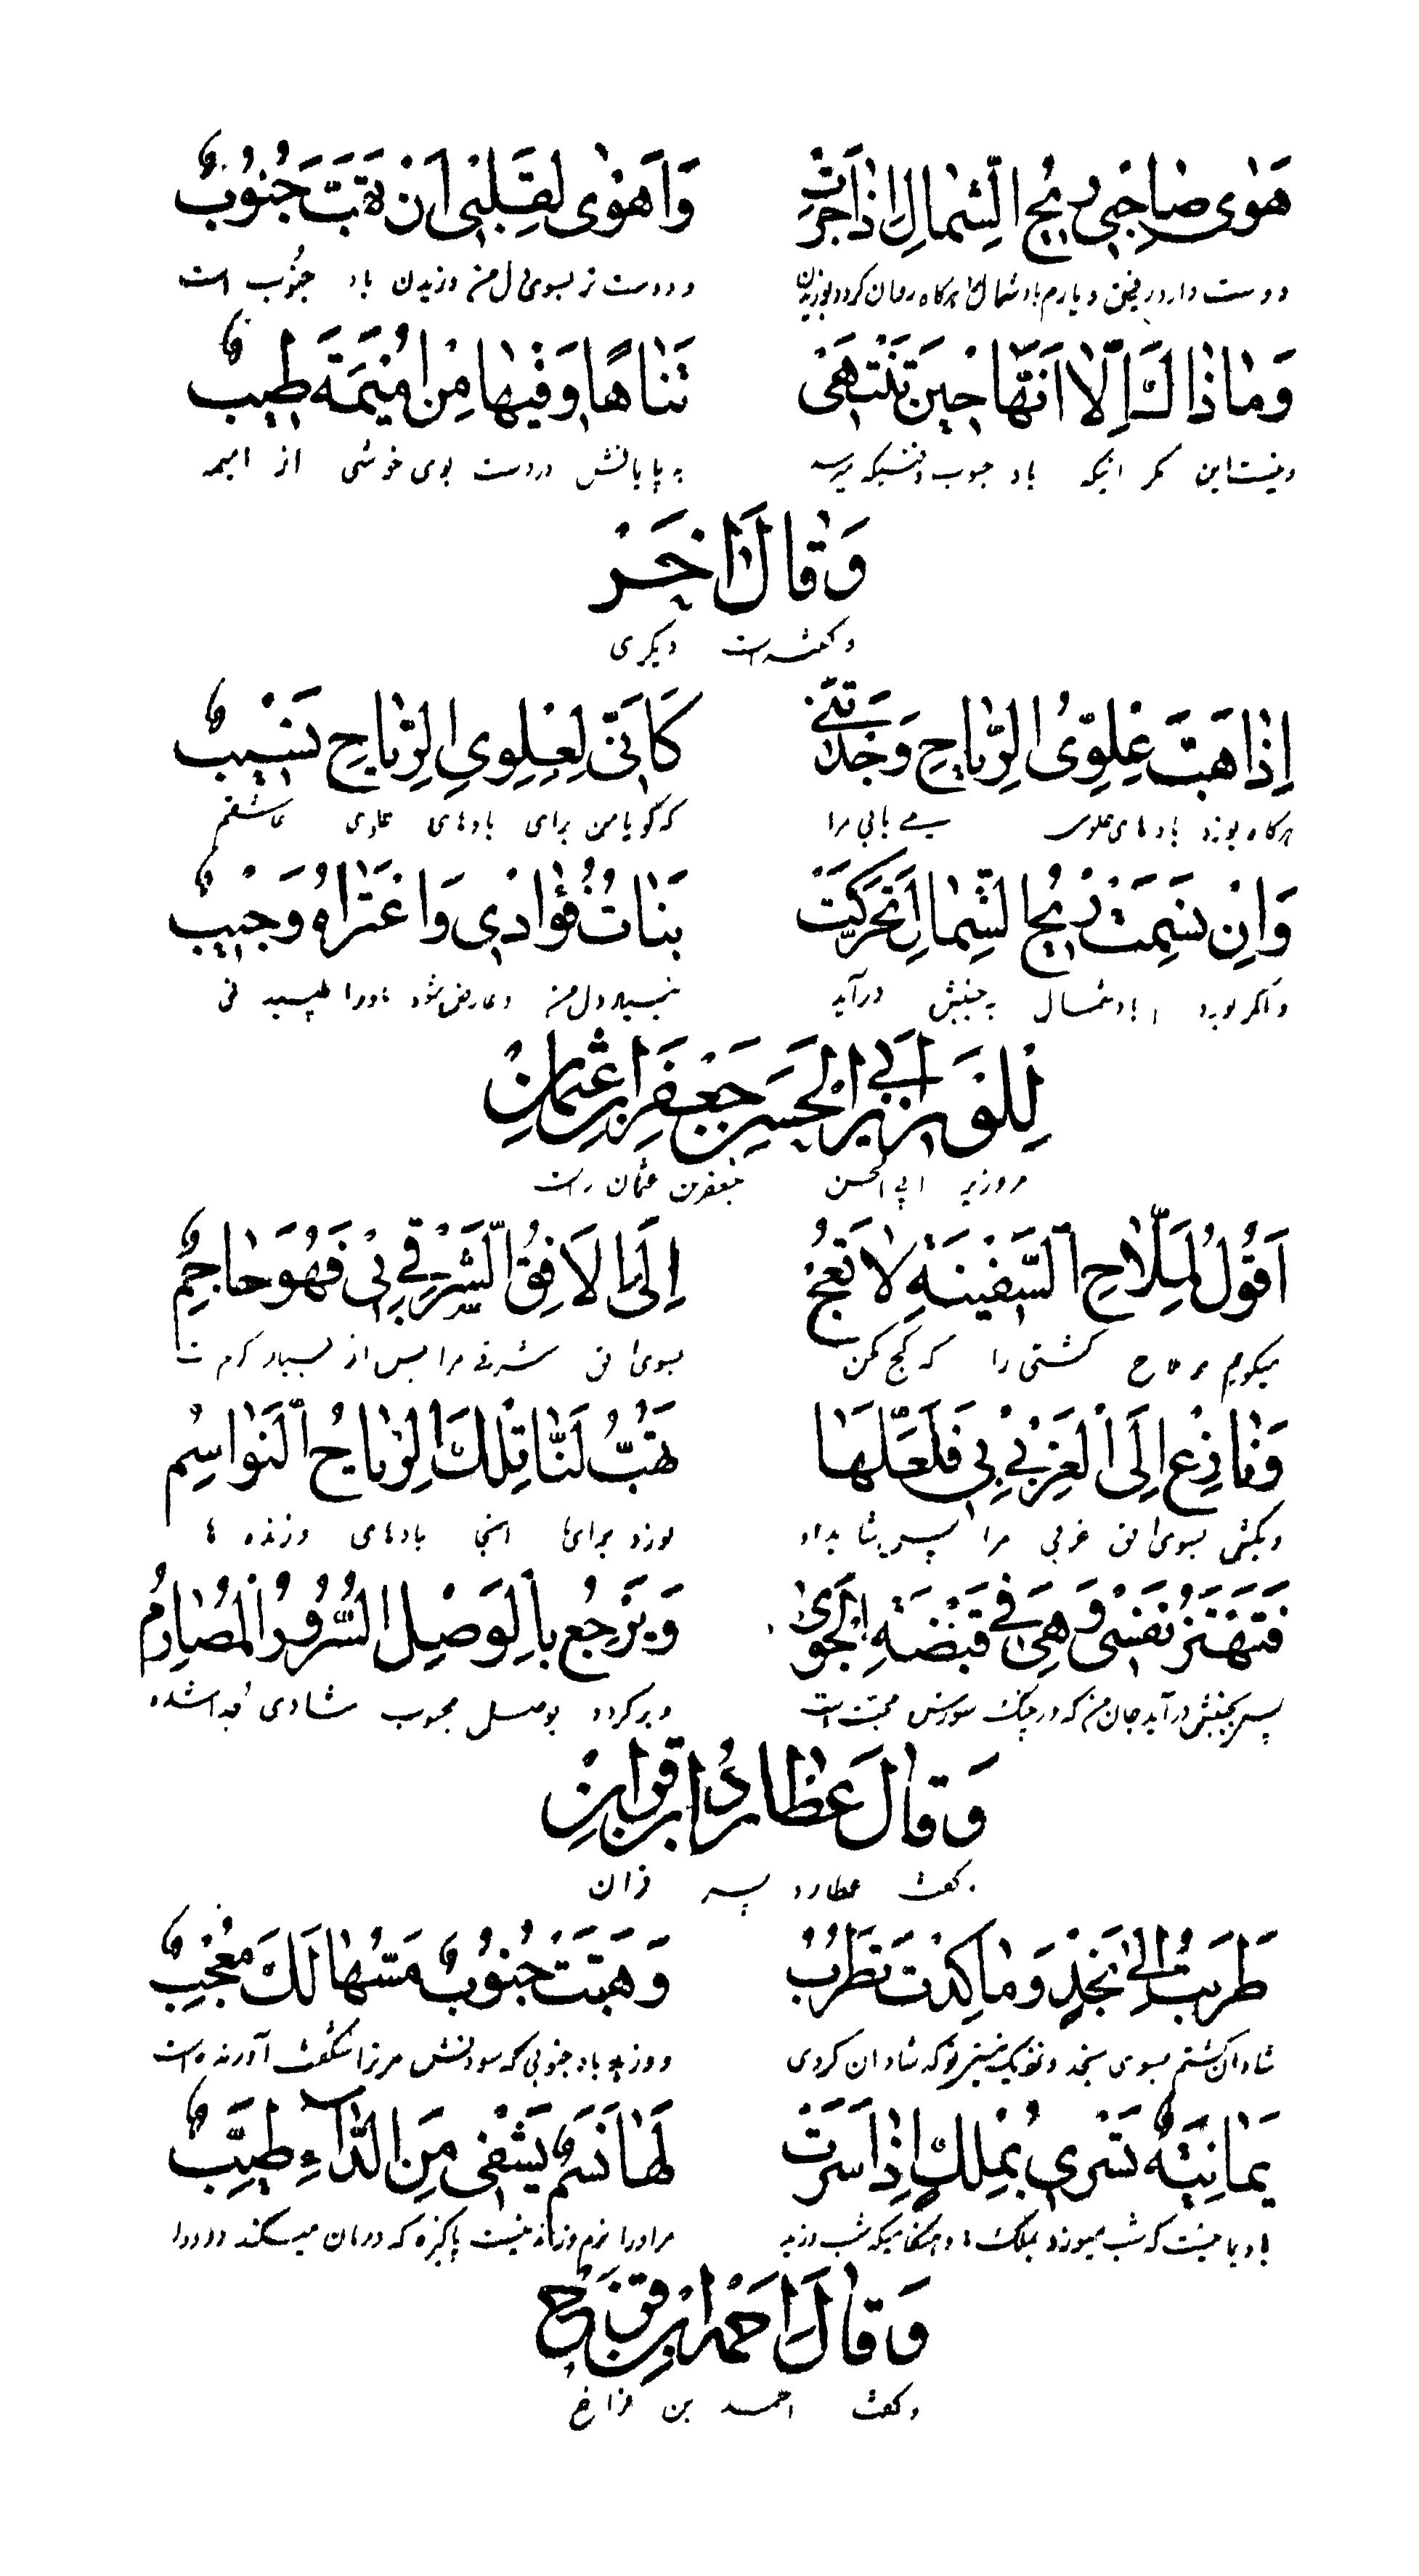 هَوٰى صٰاحِبي رِيحُ الشِّمالِ اِذٰا جَرَتْ وَاَهْوٰى لِقَلْبي اَنْ تَهَبَّ جَنُوبٌ
دوست دارد رفیق و یارم باد شمال را هرگاه روان گردد بوزیدن و دوست تر بسوی دل من وزیدن باد جنوب است
وَمٰا ذٰاكَ اِلّا اَنَّهٰا حِينَ تَنْتَهي تَنٰاهٰا وَفيهٰا مِنْ اُمَيْمَةَ طيبٌ
و نیست این مگر اینکه باد جنوب وقتیکه میرسد به پایانش در اوست بوی خوشی از امیمه
وَقٰالَ اٰخَرُ
و گفته است دیگری
اِذٰا هَبَّ عُلْوِىُّ الرِّيٰاحِ وَجَدْتَني كَاَنّي لِعُلْوِىِّ الرِّيٰاحِ نَسيبٌ
هرگاه بوزد بادهای علوی می یابی مرا که گویا من برای بادهای علوی عاشقم
وَاِنْ نَسَمَتْ ريحُ الشِّمٰالِ تَحَرَّكَتْ بَنٰاتُ فُؤٰادي وَاعْتَرٰاهُ وَجيبٌ
و اگر بوزد باد شمال به جنبش درآید دل من و عارض شود او را طپیدنی
لِلْوَزيرِ اَبي الْحَسَنِ جَعْفَرِ ابْنِ عُثْمٰانَ
مر وزیر ابی الحسن جعفر بن عثمان راست
اَقُولُ لِمَلّاحِ السَّفينَةِ لٰا تَعُجْ اِلَى الْاُفُقِ الشَّرْقِيِّ بي فَهُوَ حٰاجِمٌ
میگویم مر ملاح کشتی را که کج مکن بسوی افق شرقی مرا پس از بسیار گرم است
وَنٰازِعْ اِلَى الْغَرْبِيِّ بي فَلَعَلَّهٰا تَهُبُّ لَنٰا تِلْكَ الرِّيٰاحُ النَّوٰاسِمُ
و بکش بسوی افق غربی مرا پس شاید او بوزد برای ما اینجا بادهای وزنده ها
فَتَهْتَزُّ نَفْسي وَهِيَ في قَبْضَةِ الْجَوىٰ وَيَرْجِعُ بِالْوَصْلِ السُّرُورُ الْمُصٰارِمُ
پس بجنبش درآید جان من که در چنگ سوزش محبت است و برگردد بوصل محبوب شادی جدا شده
وَقٰالَ عَطٰارِدُ ابْنُ قُرّانَ
و گفت عطارد پسر قران
طَرِبْتُ اِلىٰ نَجْدٍ وَمٰا كِدْتَ تَطْرَبُ وَهَبَّتْ جَنُوبٌ مَسُّهٰا لَكَ مُعْجِبٌ
شادان گشتم بسوی نجد و نزدیک نیستی تو که شادان گردی و وزید باد جنوبی که سودنش مر ترا شگفت آورنده است
يَمٰانِيَةٌ تَسْري بِمُلْكٍ اِذٰا سَرَتْ لَهٰا نَسَمٌ يَشْفي مِنَ الدّٰاءِ طَيِّبٌ
باد یمانیست که شب میوزد بملک ما و هنگامیکه شب وزید مر او را نرم وزانه نیست پاکیزه که درمان میکند درد را
وَقٰالَ اَحْمَدُ ابْنُ فَرَحٍ
و گفت احمد بن